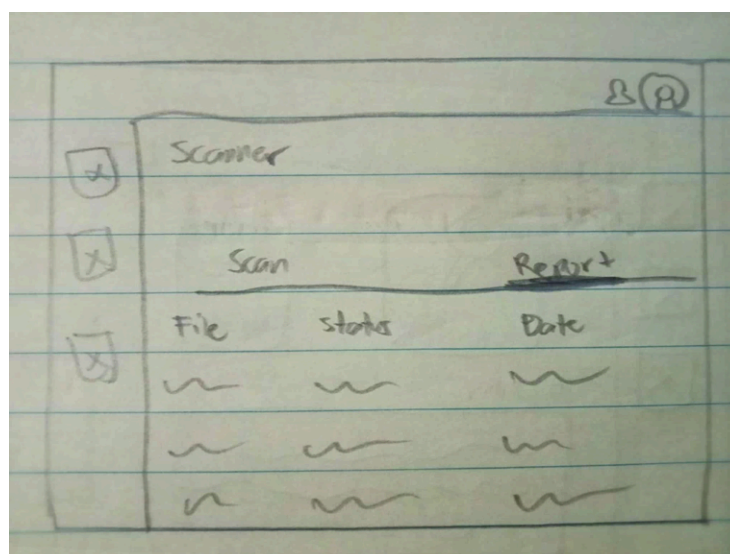 Scanner
Scan Report
File Status Date